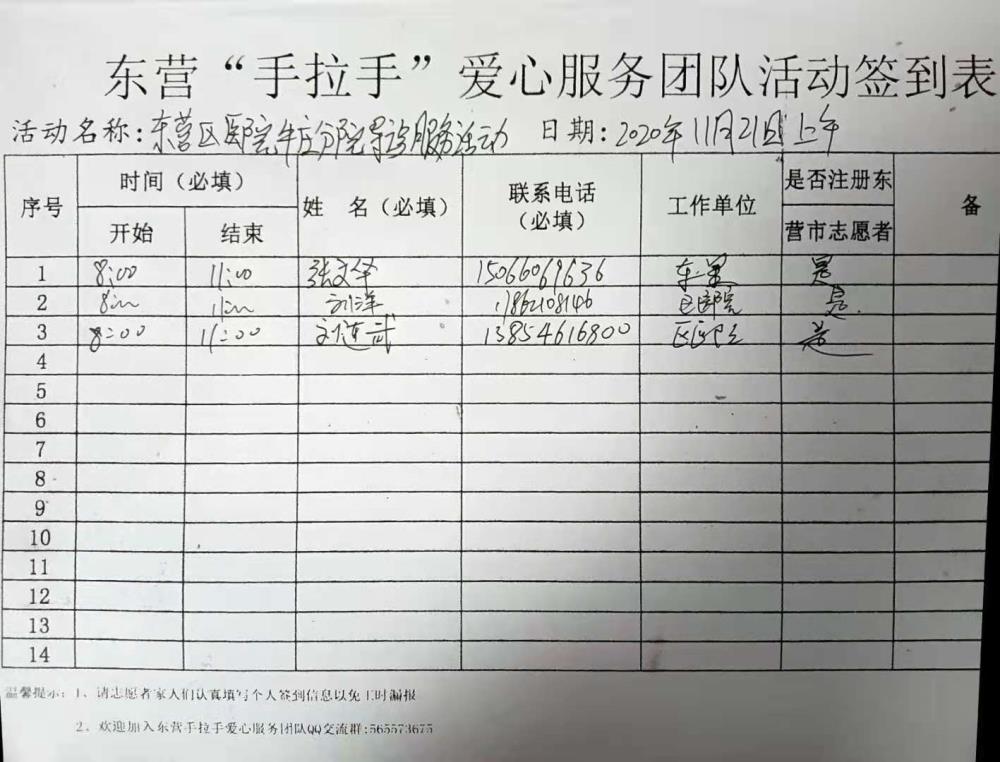 东营“手拉手”爱心服务团队活动签到表
活动名称:东营区医院牛庄分院导诊服务活动 日期:2020年11月21日上午
序号 时间(必填) 姓 名(必填) 联系电话(必填) 工作单位 是否注册东营市志愿者 备
开始 结束
1 8:00 11:00 张文华 15066069636 东营 是
2 8:00 11:00 刘洋 区医院 是
3 8:00 11:00 刘连武 13854616800 区医院 是
4
5
6
7
8
9
10
11
12
13
14
温馨提示:1、请志愿者家人们认真填写个人签到信息以免工时漏报
2、欢迎加入东营手拉手爱心服务团队QQ交流群:565573675